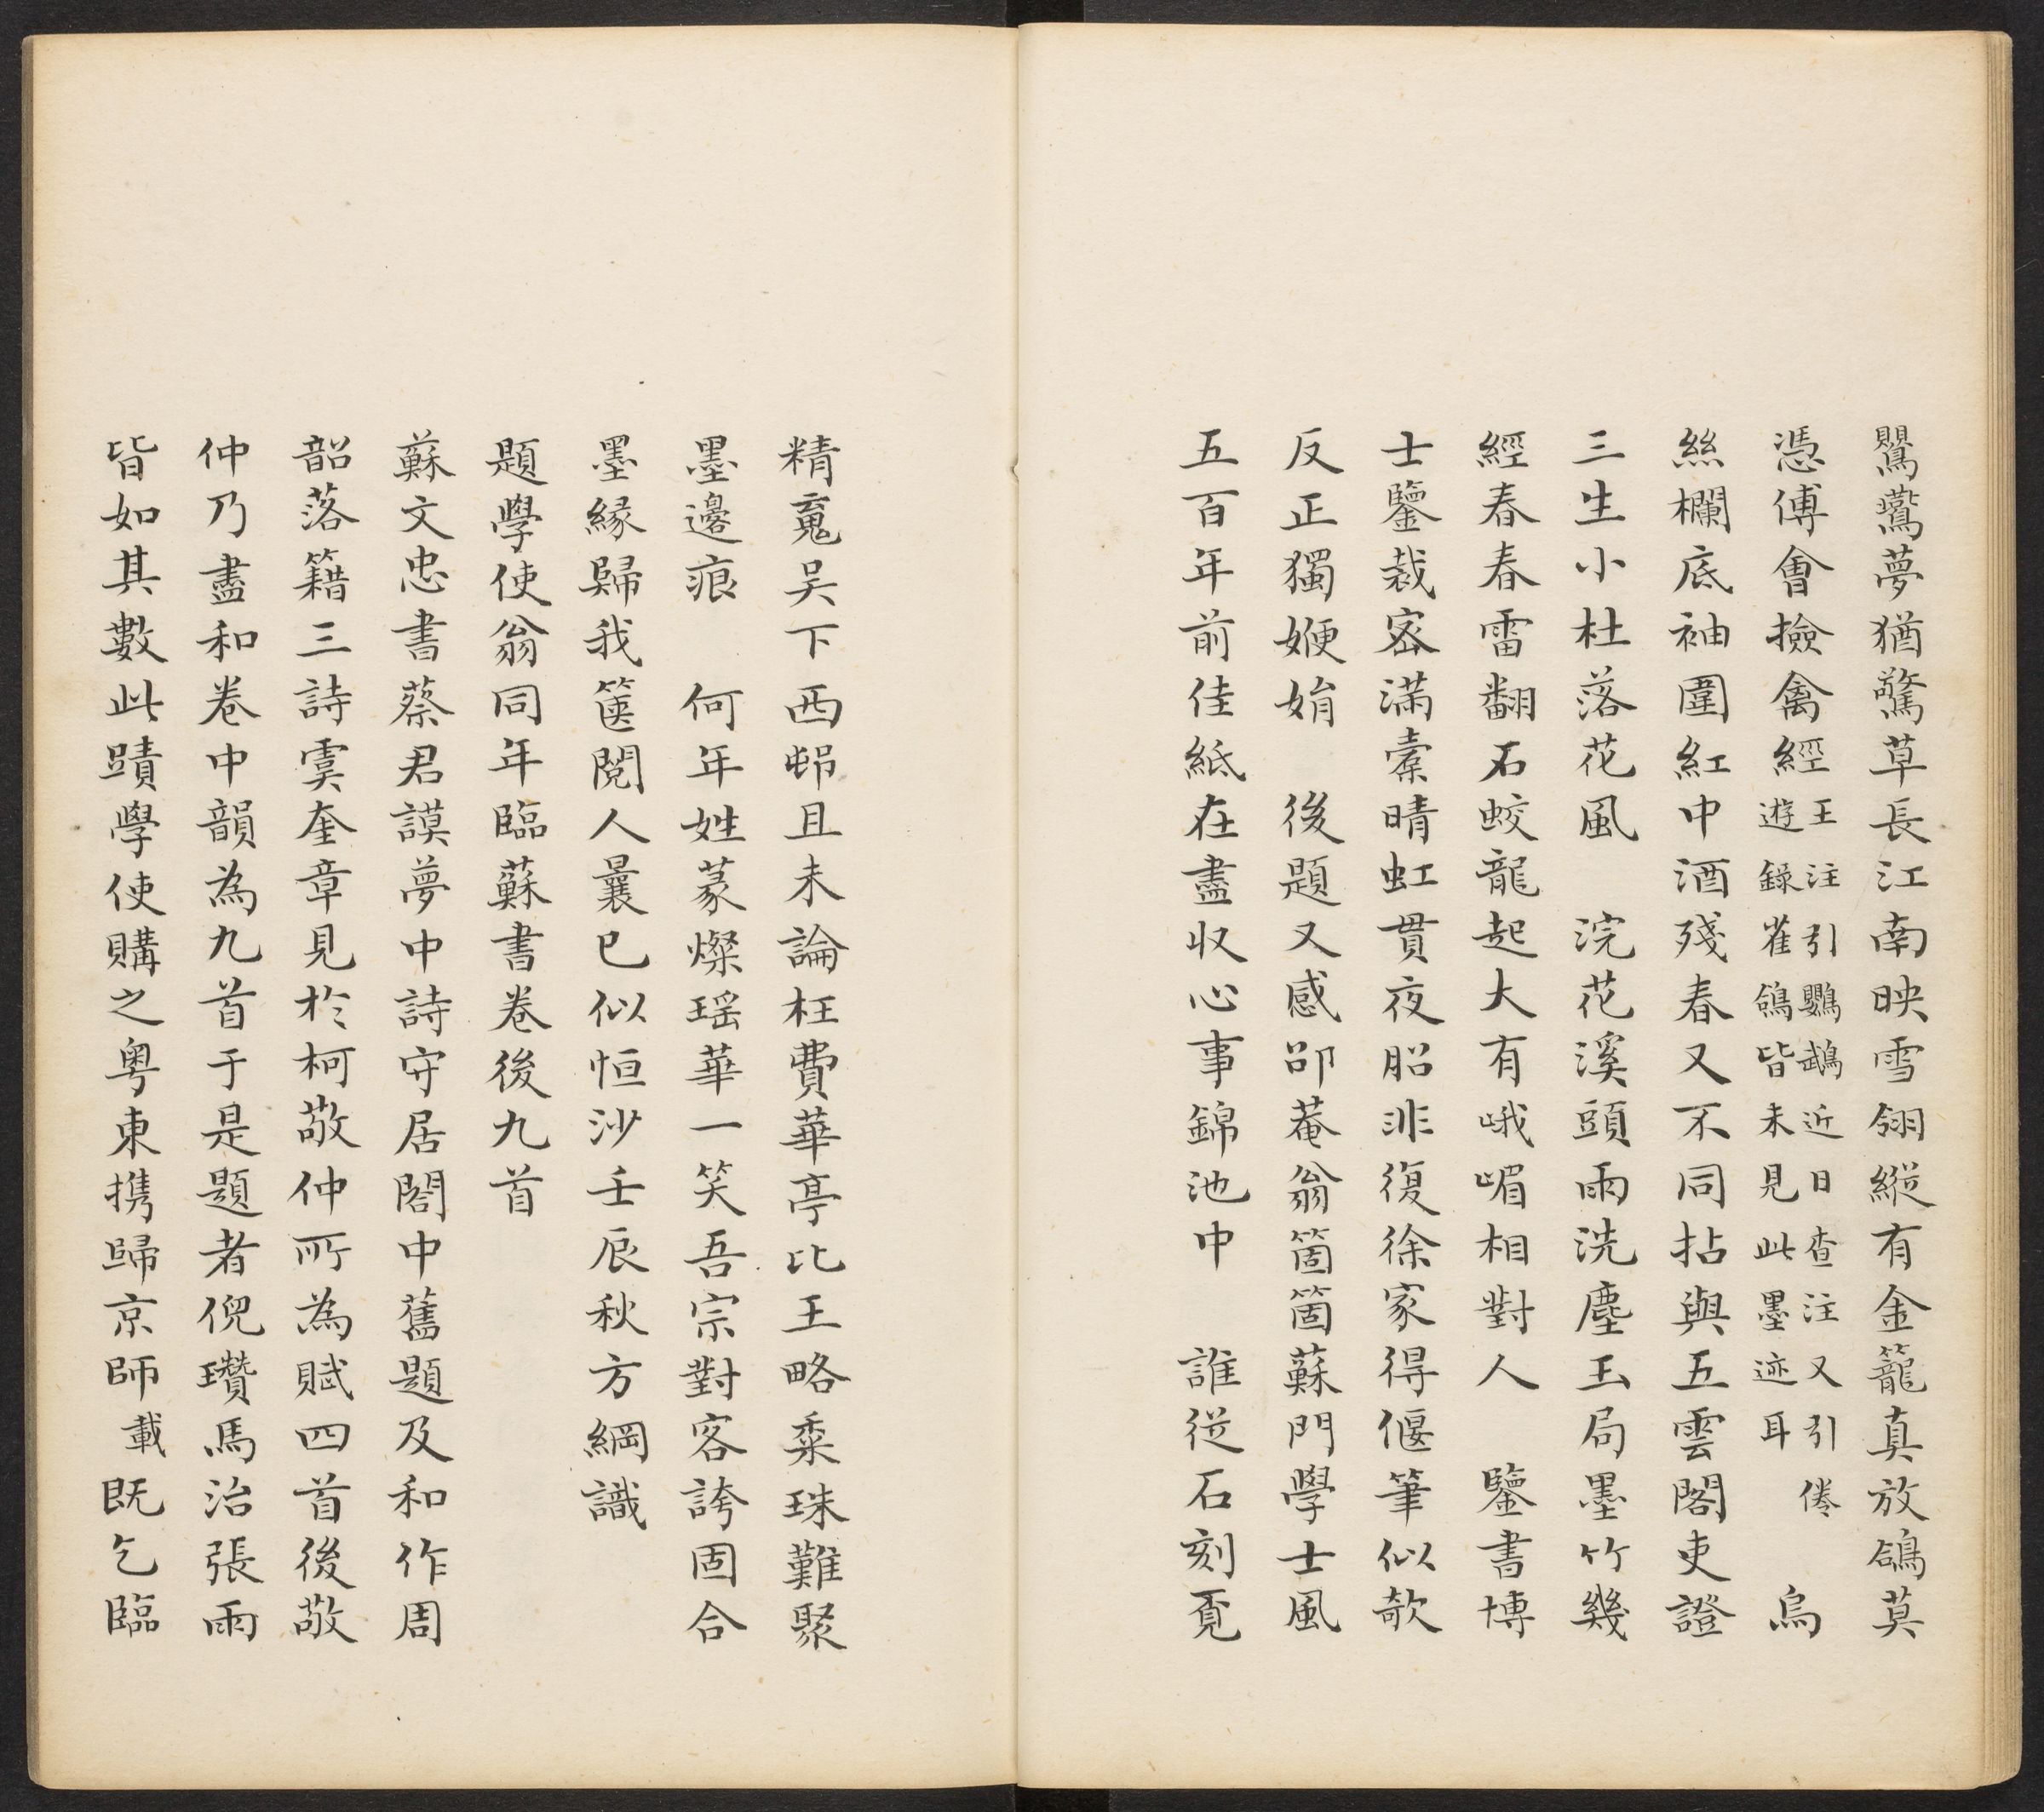 鸎鷰夢猶驚草長江南映雪翎縱有金籠真放鴿莫
憑傅會撿禽經王注引鸚鵡近日查注又引倦遊錄雀鴿皆未見此墨迹耳　烏
絲欄底袖圍紅中酒殘春又不同拈與五雲閣吏證
三生小杜落花風　浣花溪頭雨洗塵玉局墨竹幾
經春春雷翻石蛟龍起大有峨嵋相對人　鑒書博
士鑒裁密滿橐晴虹貫夜船非復徐家得偃筆似欹
反正獨㛹娟　後題又感邵菴翁箇箇蘇門學士風
五百年前佳紙在盡收心事錦池中　誰從石刻覓
精䰟吴下西邨且未論枉費華亭比王略桼珠難聚
墨邊痕　何年姓篆燦瑶華一笑吾宗對客誇固合
墨緣歸我篋閱人曩已似恒沙壬辰秋方綱識
題學使翁同年臨蘇書卷後九首
蘇文忠書蔡君謨夢中詩守居閣中舊題及和作周
韶落籍三詩虞奎章見於柯敬仲所為賦四首後敬
仲乃盡和卷中韻為九首于是題者倪瓚馬治張雨
皆如其數此蹟學使購之粤東携歸京師載既乞臨